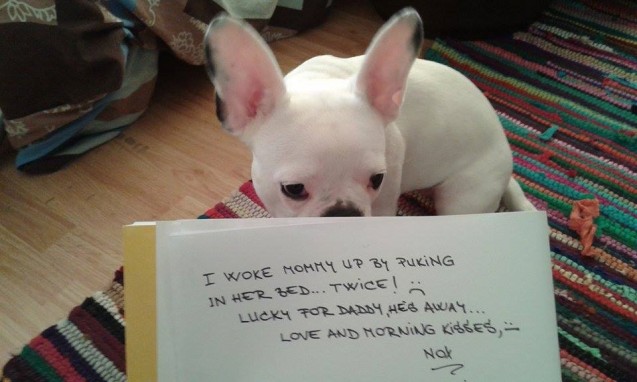 I WOKE MOMMY UP BY PUKING
IN HER BED... TWICE! :(
LUCKY FOR DADDY, HE'S AWAY...
LOVE AND MORNING KISSES, :-)